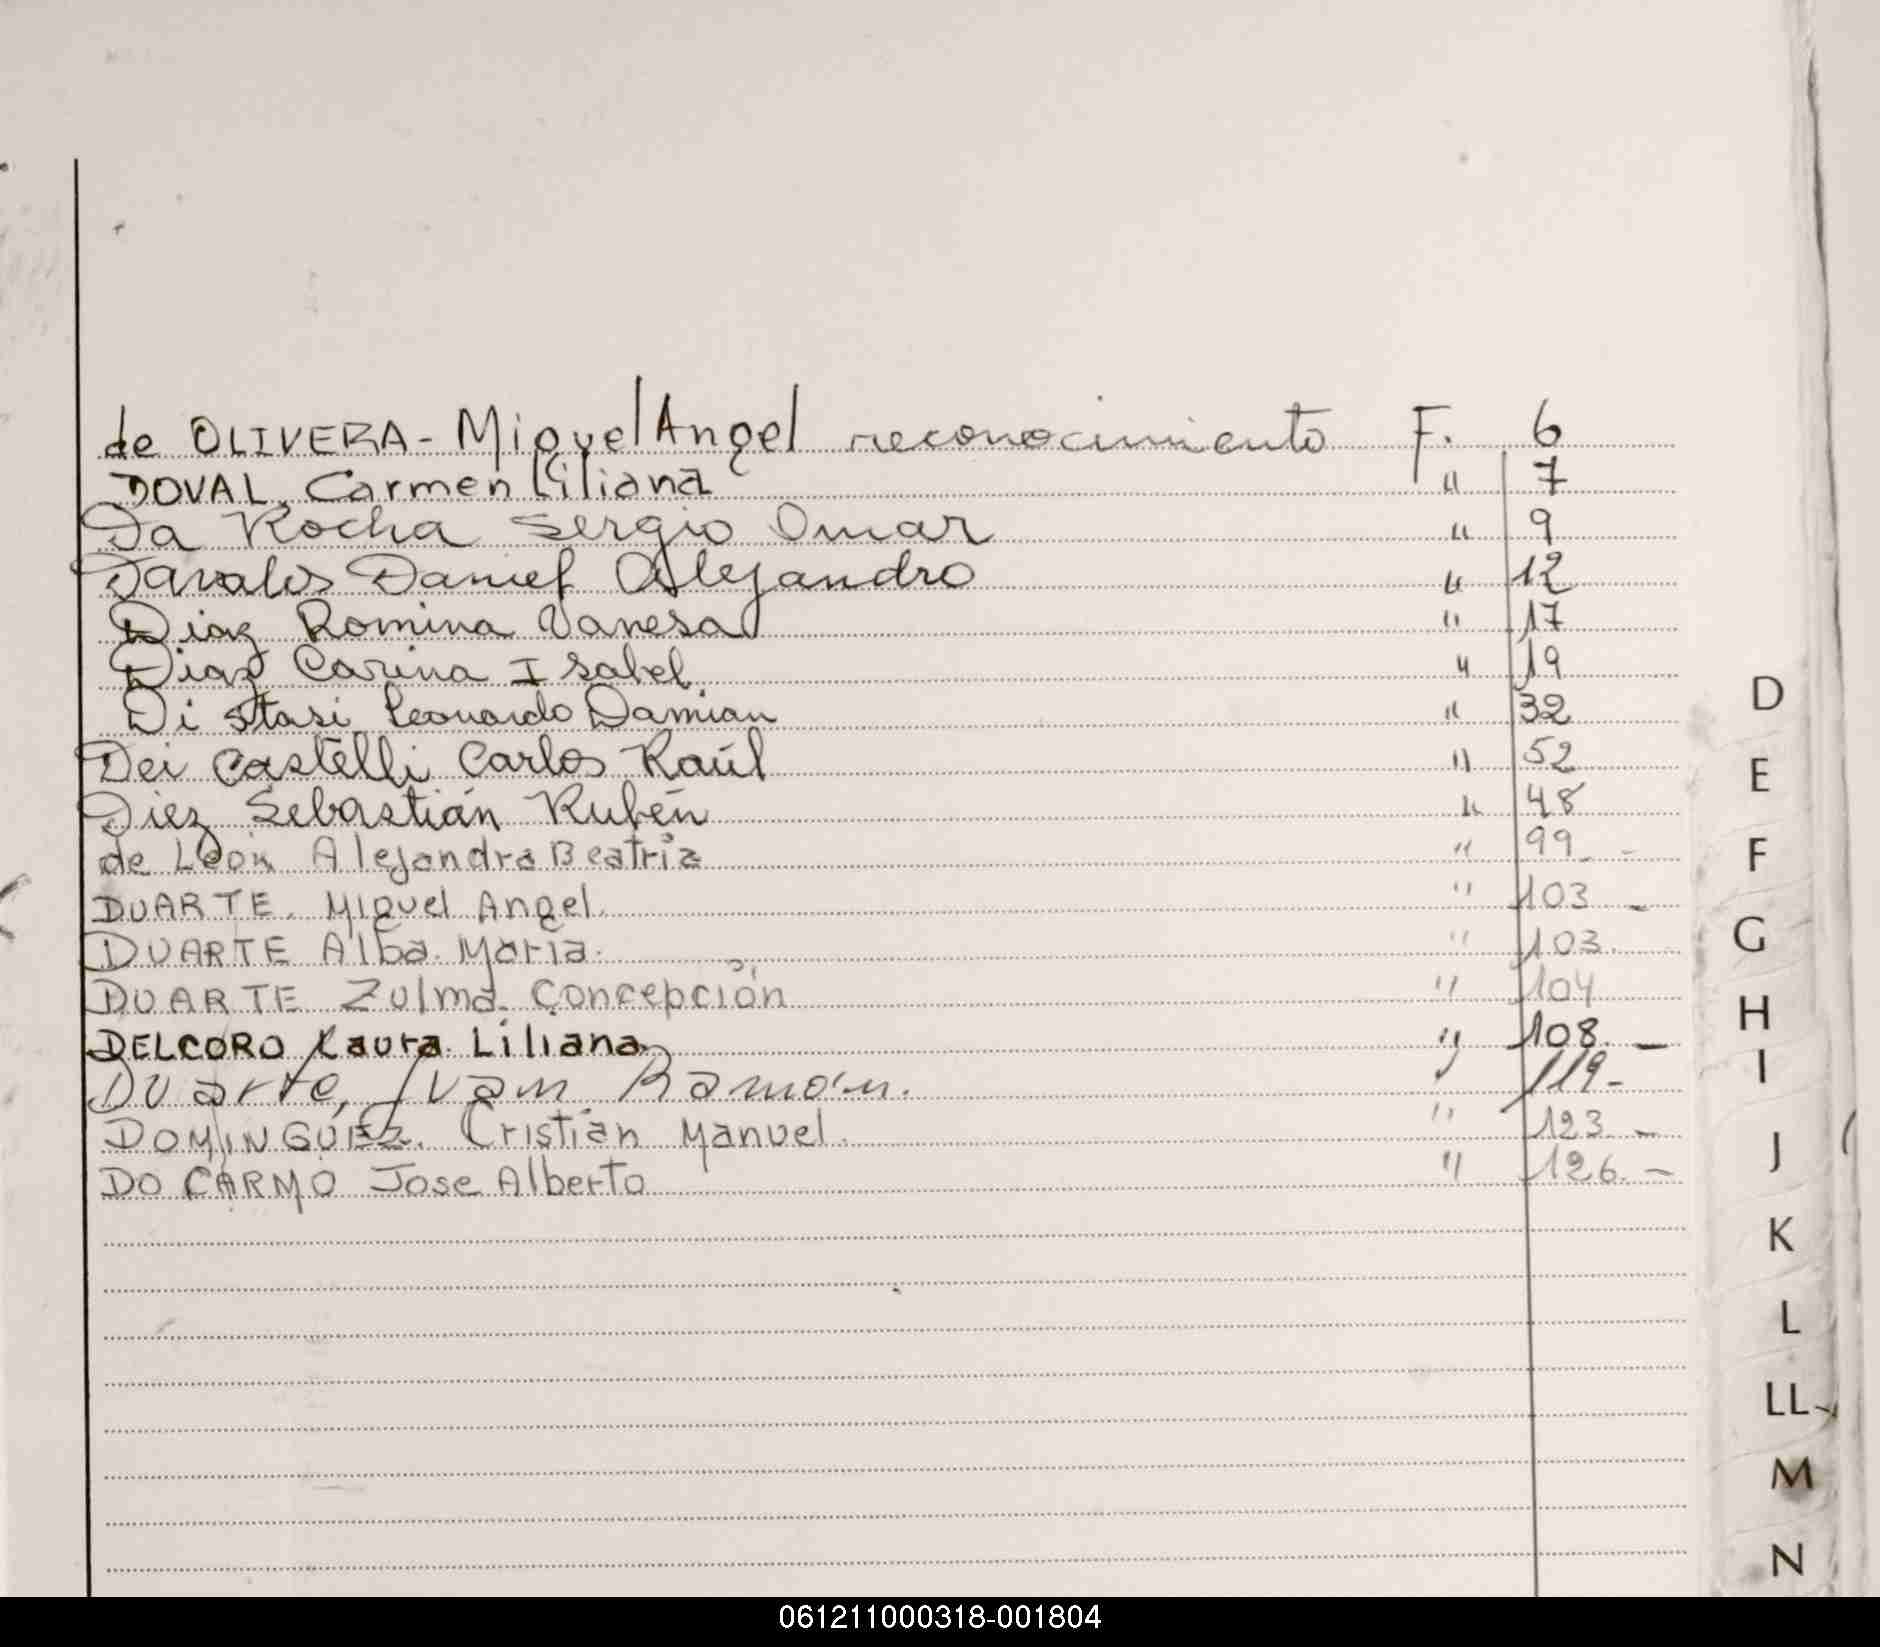 de OLIVERA - Miguel Angel reconocimiento F. 6
DOVAL, Carmen Liliana " 7
Da Rocha Sergio Omar " 9
Davalos Daniel Alejandro " 12
Diaz Romina Vanesa " 17
Diaz Carina Isabel " 19
Di Stasi Leonardo Damian " 32
Dei Castelli Carlos Raúl " 52
Diez Sebastián Rubén " 48
de Leon Alejandra Beatriz " 99 -
DUARTE. Miguel Angel. " 103 -
DUARTE Alba. Maria. " 103.
DUARTE Zulma. Concepción " 104
DELCORO Laura Liliana. " 108. -
Duarte, Ivan Ramón. " 119 -
DOMINGUEZ. Cristian Manuel. " 123. -
DO CARMO Jose Alberto " 126. -
D
E
F
G
H
I
J
K
L
LL
M
N
061211000318-001804